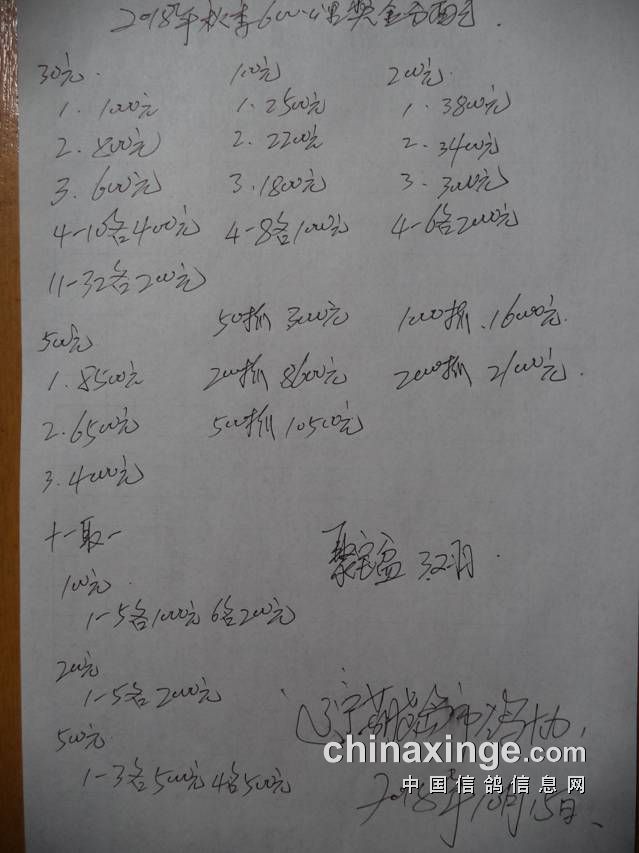 2018年秋季600公里奖金分配
30元. 100元 200元.
1. 1000元 1. 2500元 1. 3800元
2. 800元 2. 2200元 2. 3400元
3. 600元 3. 1800元 3. 3000元
4-10名400元 4-8名1000元 4-6名2000元
11-32名200元
50抓 3000元 1000抓.1600元.
500元
1. 8500元 200抓 8600元 2000抓 2100元.
2. 6500元 500抓 10500元
3. 4000元
十一取一
聚宝盆 32羽.
100元.
1-5名1000元 6名200元
200元
1-5名2000元
辽宁葫芦岛市鸽协
500元.
chinaxinge.com
1-3名5000元 4名500元
中国信鸽信息网
2018年10月15日.